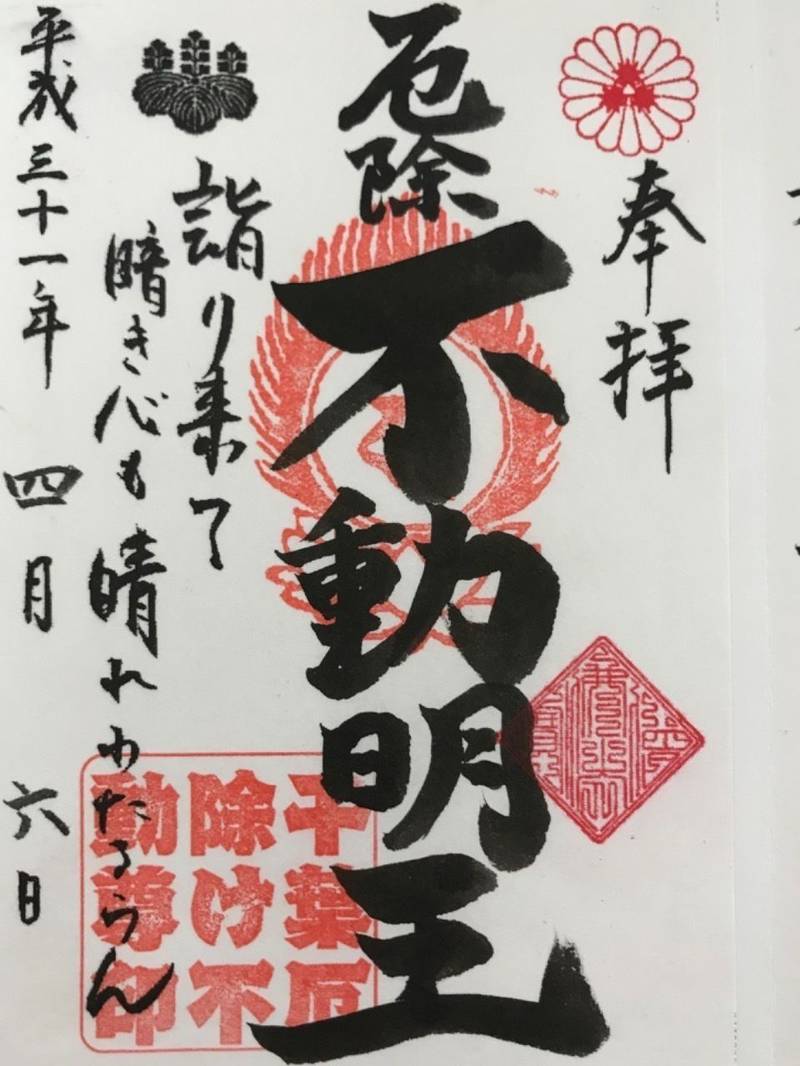 奉拝
厄除
不動明王
詣り来て
暗き心も晴れわたるらん
平成三十一年 四月 六日
千葉厄
除け不
動尊印